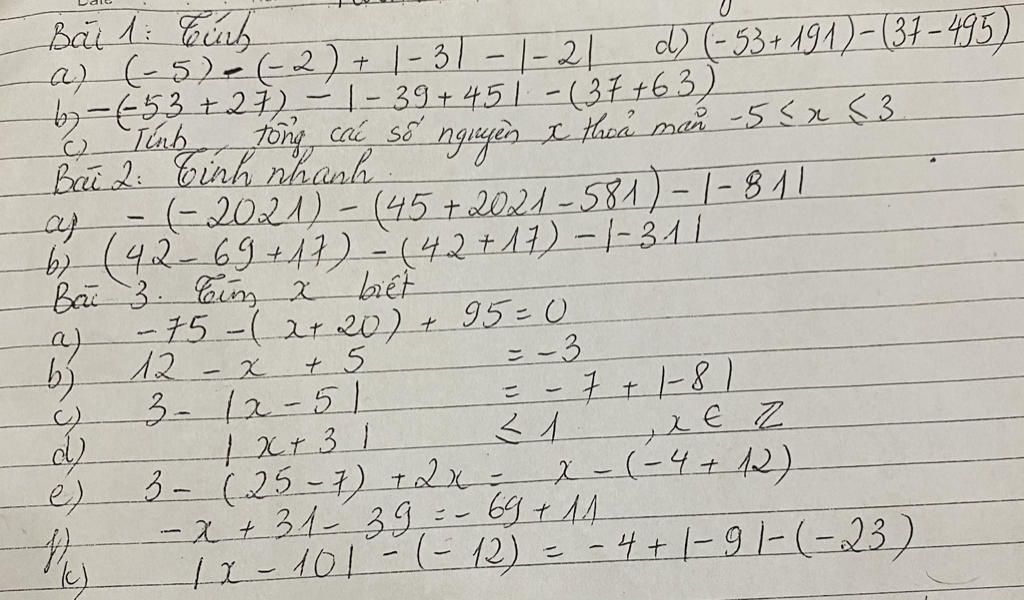 Bài 1: Tính
a) (-5) - (-2) + |-3| - |-2| d) (-53+191) - (37-495)
b) -(-53 + 27) - |-39+45| - (37+63)
c) Tính tổng các số nguyên x thoả mãn -5 ≤ x ≤ 3
Bài 2: Tính nhanh.
a) - (-2021) - (45 + 2021 - 581) - |-81|
b) (42 - 69 + 17) - (42 + 17) - |-31|
Bài 3. Tìm x biết
a) -75 - (x + 20) + 95 = 0
b) 12 - x + 5 = -3
c) 3 - |x - 5| = -7 + |-8|
d) |x + 3| ≤ 1 , x ∈ Z
e) 3 - (25 - 7) + 2x = x - (-4 + 12)
f) -x + 31 - 39 = -69 + 11
k) |x - 10| - (-12) = -4 + |-9| - (-23)